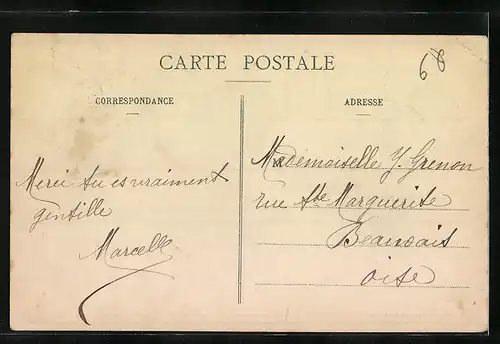 68
CARTE POSTALE
CORRESPONDANCE
ADRESSE
Merci tu es vraiment
gentille
Marcelle
Mademoiselle Y. Grenon
rue Ste Marguerite
Beauvais
Oise